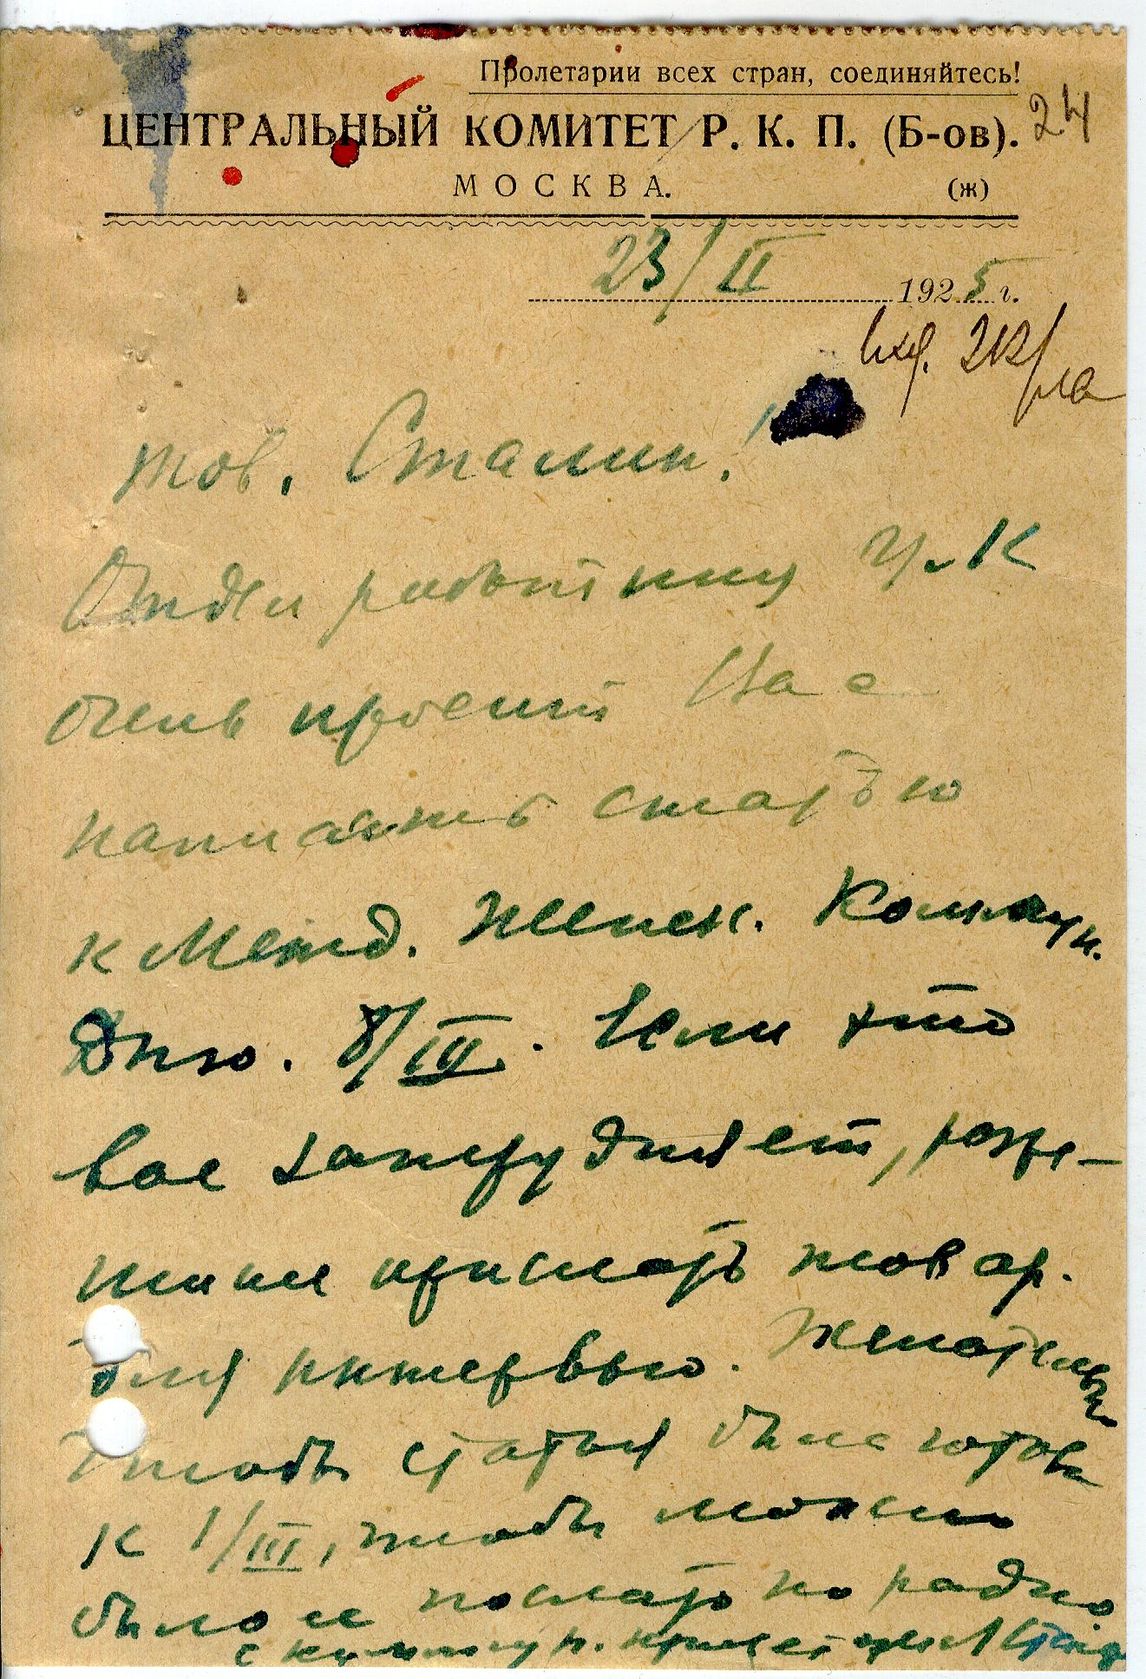 Пролетарии всех стран, соединяйтесь!
ЦЕНТРАЛЬНЫЙ КОМИТЕТ Р. К. П. (Б-ов).
24
МОСКВА. (ж)
23/II 1925 г.
вхд.
тов. Сталин!
Отдел работниц Ц.К
очень просит Вас
написать статью
к Межд. Женск. Коммун.
Дню. 8/III. Если это
вас затрудняет, разре-
шите прислать товар.
для интервью. Желательно
чтобы статья была готова
к 1/III, чтобы можно
было и послать по радио
с коммун. приветом